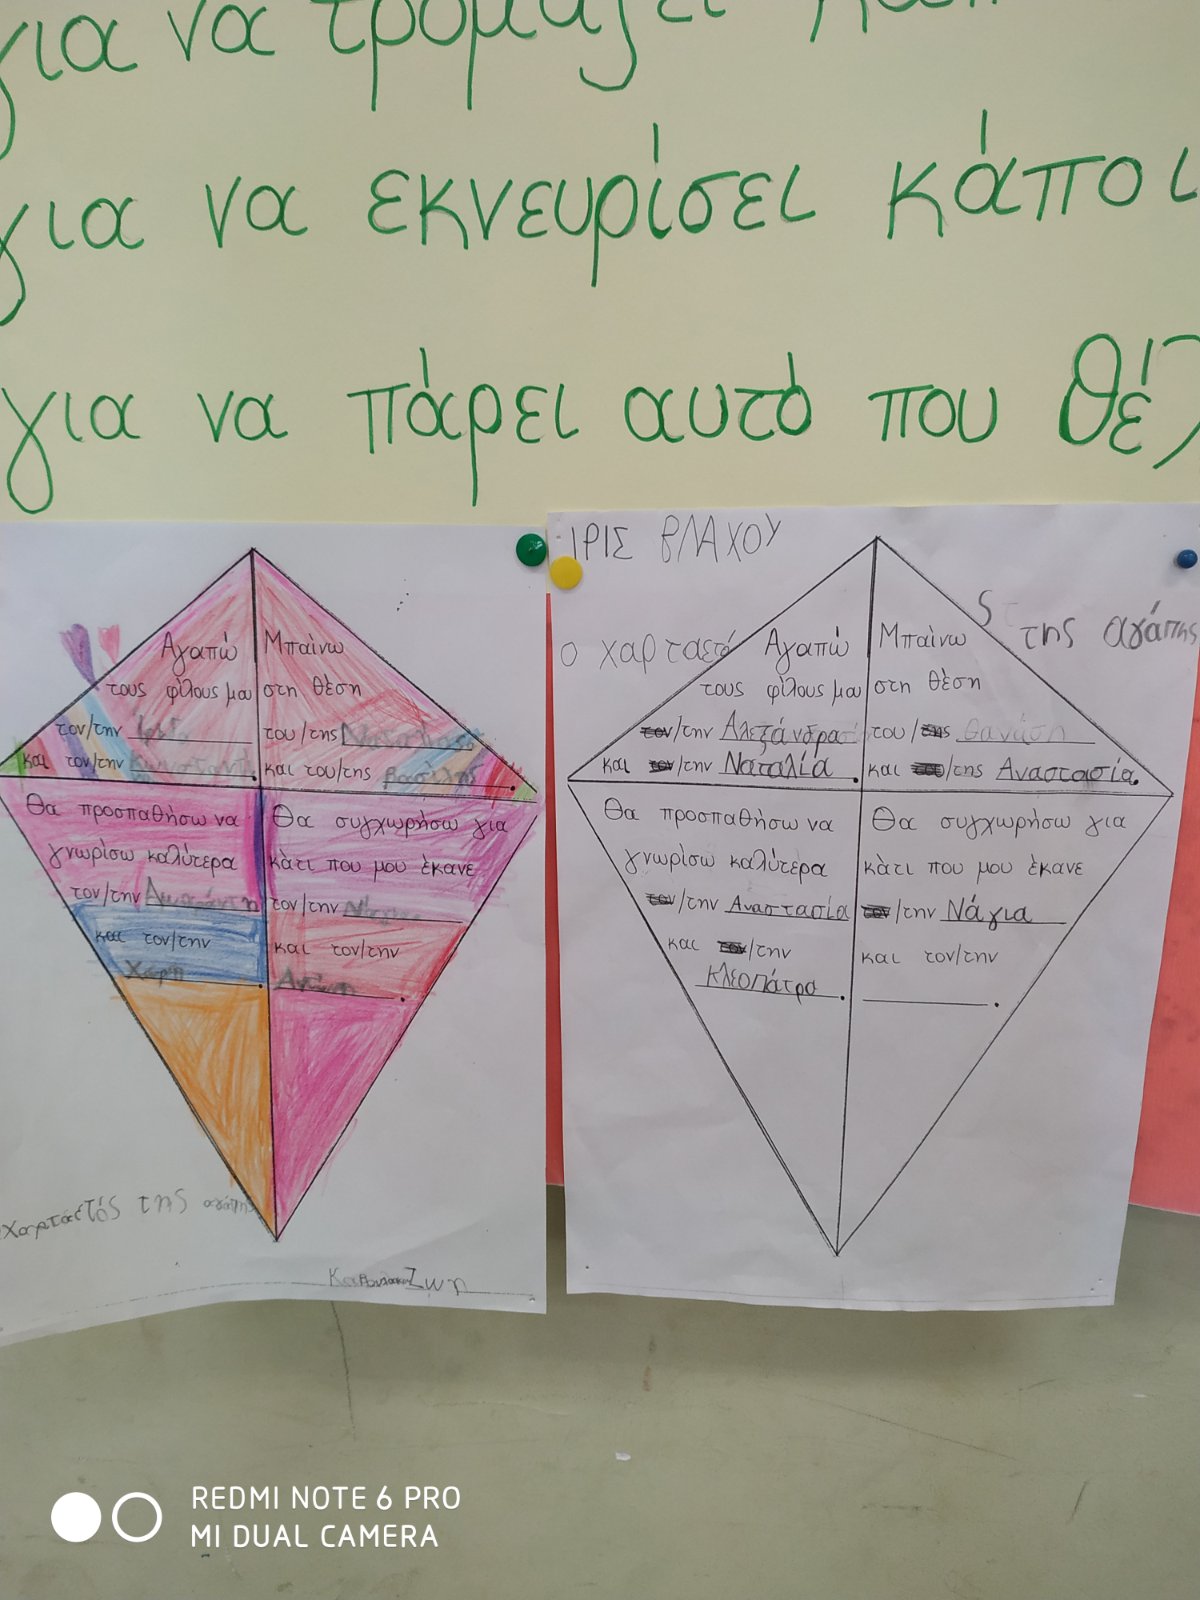 για να τρομάξει
για να εκνευρίσει κάποι
για να πάρει αυτό που θέλ
Αγαπώ
τους φίλους μου
τον/την
και τον/την Κωνσταντί
Μπαίνω
στη θέση
του/της
και του/της Βασίλης
Θα προσπαθήσω να
γνωρίσω καλύτερα
τον/την
και τον/την
Χάρη
Θα συγχωρήσω για
κάτι που μου έκανε
τον/την
και τον/την
χαρταετός της αγάπης
Ζωη
ΙΡΙΣ ΒΛΑΧΟΥ
ο χαρταετό
ς της αγάπης
Αγαπώ
τους φίλους μου
τον/την Αλεξάνδρα
και τον/την Ναταλία.
Μπαίνω
στη θέση
του/της Θανάση
και του/της Αναστασία.
Θα προσπαθήσω να
γνωρίσω καλύτερα
τον/την Αναστασία
και τον/την
Κλεοπάτρα.
Θα συγχωρήσω για
κάτι που μου έκανε
τον/την Νάγια
και τον/την
REDMI NOTE 6 PRO
MI DUAL CAMERA